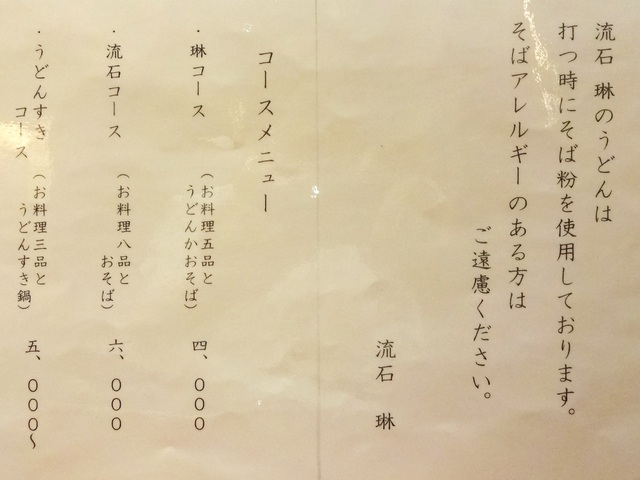 流石 琳のうどんは
打つ時にそば粉を使用しております。
そばアレルギーのある方は
ご遠慮ください。
流石 琳
コースメニュー
・琳コース (お料理五品と
うどんかおそば) 四、〇〇〇
・流石コース (お料理八品と
おそば) 六、〇〇〇
・うどんすき
コース (お料理三品と
うどんすき鍋) 五、〇〇〇〜